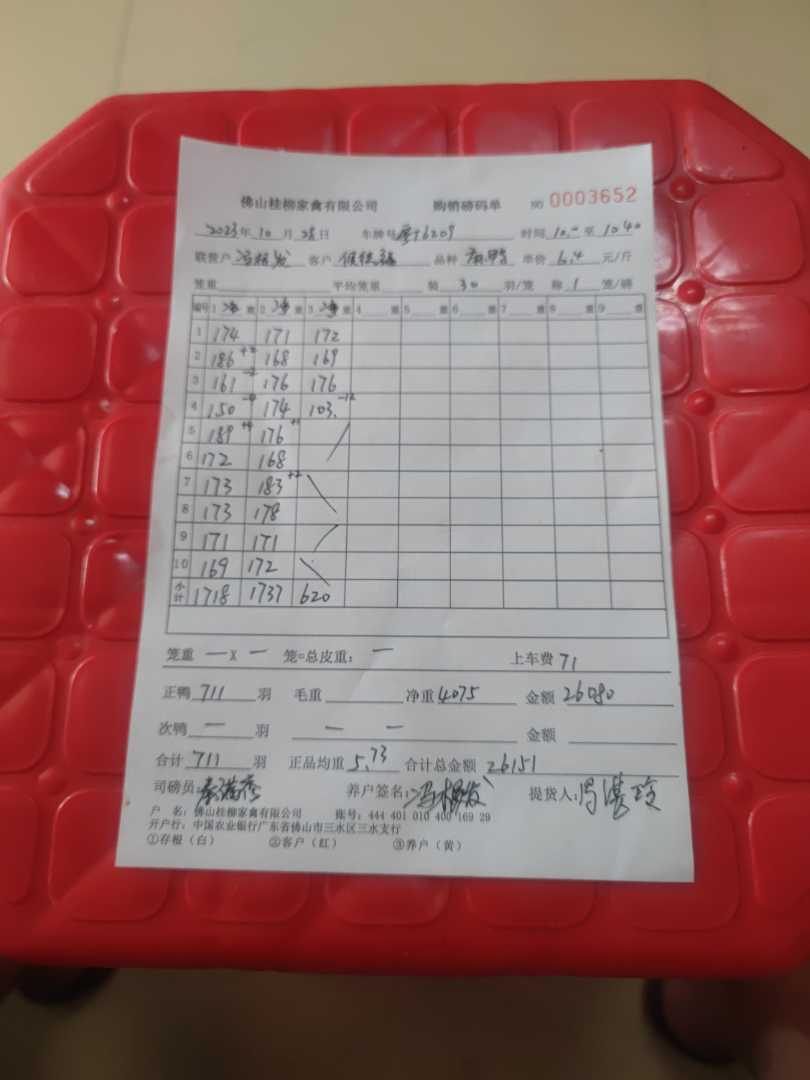 佛山桂柳家禽有限公司 购销磅码单 NO 0003652
2023年10月28日 车牌号 6209 时间 10. 至 10.40
联营户 冯根发 客户 品种 麻鸭 单价 6.4 元/斤
笼重 平均笼重 装 30 羽/笼 称 1 笼/磅
编号 1 净 重 2 净 重 3 净 重 4 重 5 重 6 重 7 重 8 重 9 重
1 174 171 172
2 186 168 169
3 161 176 176
4 150 174 103
5 189 176
6 172 168
7 173 183 +2
8 173 178
9 171 171
10 169 172
小计 1718 1737 620
笼重 — X — 笼=总皮重: — 上车费 71
正鸭 711 羽 毛重 净重 4075 金额 26080
次鸭 — 羽 — — 金额
合计 711 羽 正品均重 5.73 合计总金额 26151
司磅员: 养户签名: 冯根发 提货人:
户 名: 佛山桂柳家禽有限公司 账号: 444 401 010 400 169 29
开户行: 中国农业银行广东省佛山市三水区三水支行
①存根(白) ②客户(红) ③养户(黄)